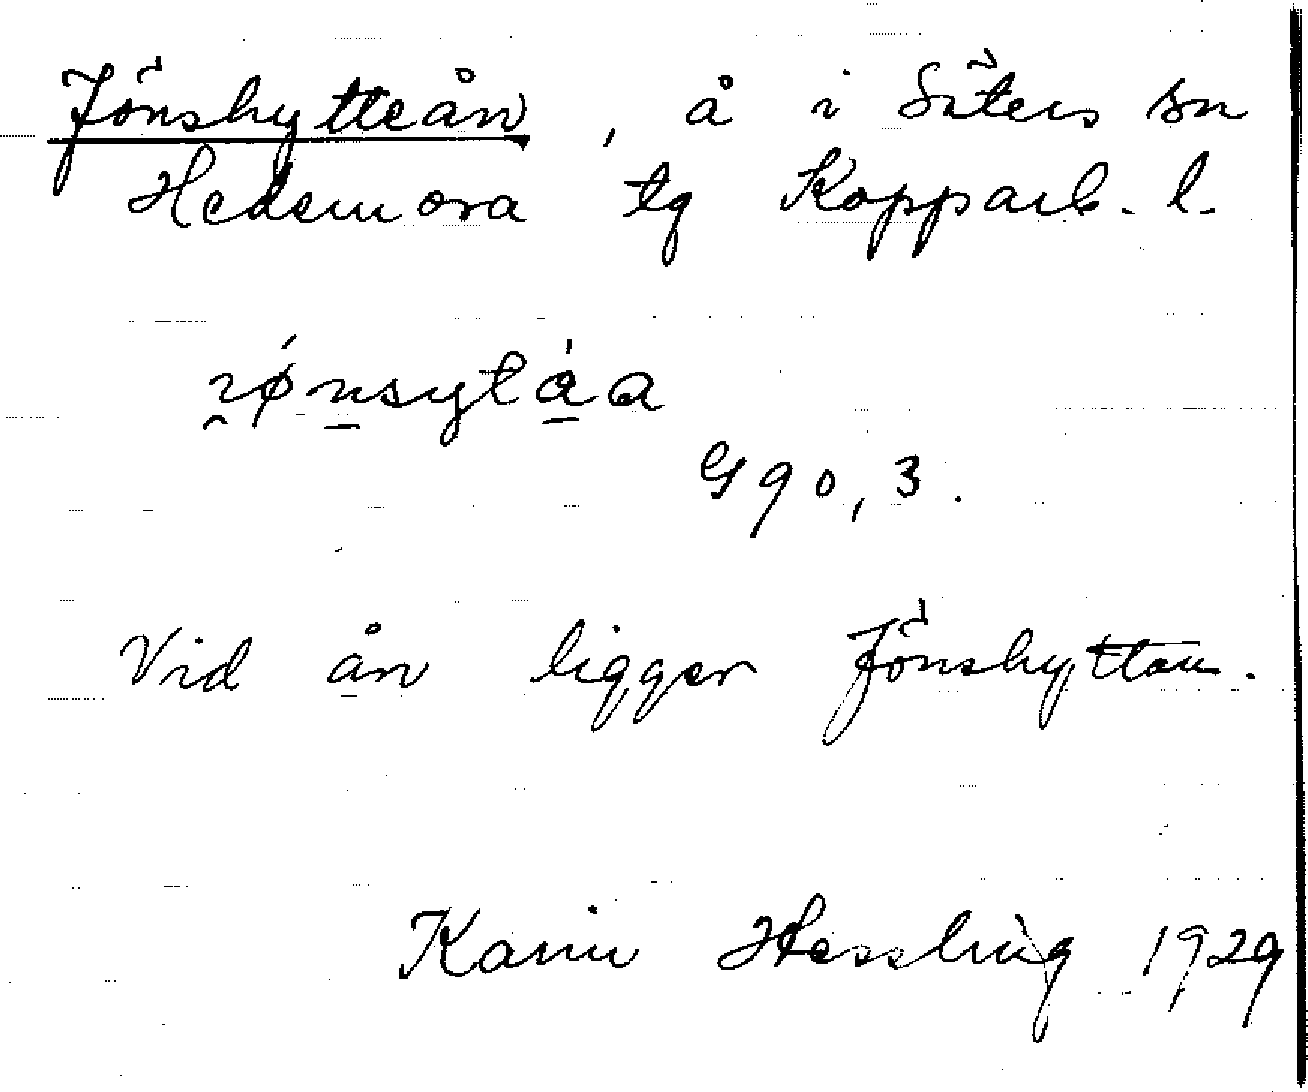 Jönshytteån, å i Säters sn
Hedemora tg Kopparb. l.
G 90, 3.
Vid ån ligger Jönshyttan.
Karin Hessling 1929